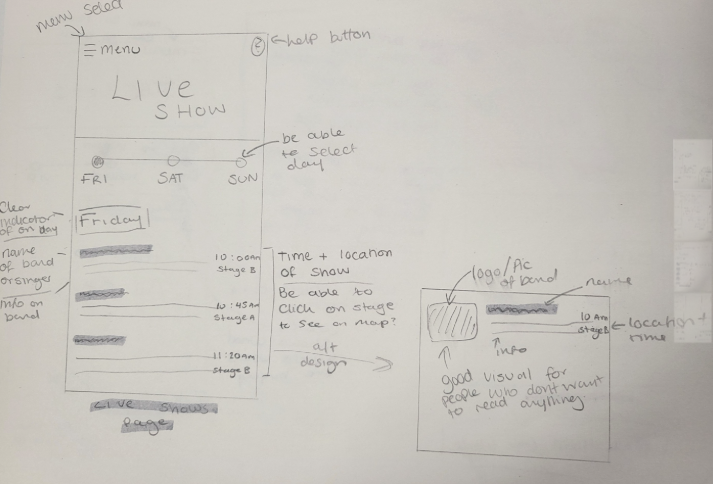 menu select
menu
?
help button
LIVE
SHOW
be able
to select
day
FRI
SAT
SUN
Clear
indicator
of on day
Friday
name
of band
or singer
info on
band
10:00am
Stage B
10:45am
Stage A
11:20am
Stage B
Time + location
of show
Be able to
click on stage
to see on map?
alt
design
Live shows
page
logo/Pic
of band
name
10 Am
Stage B
location +
time
info
good visual for
people who dont want
to read anything.